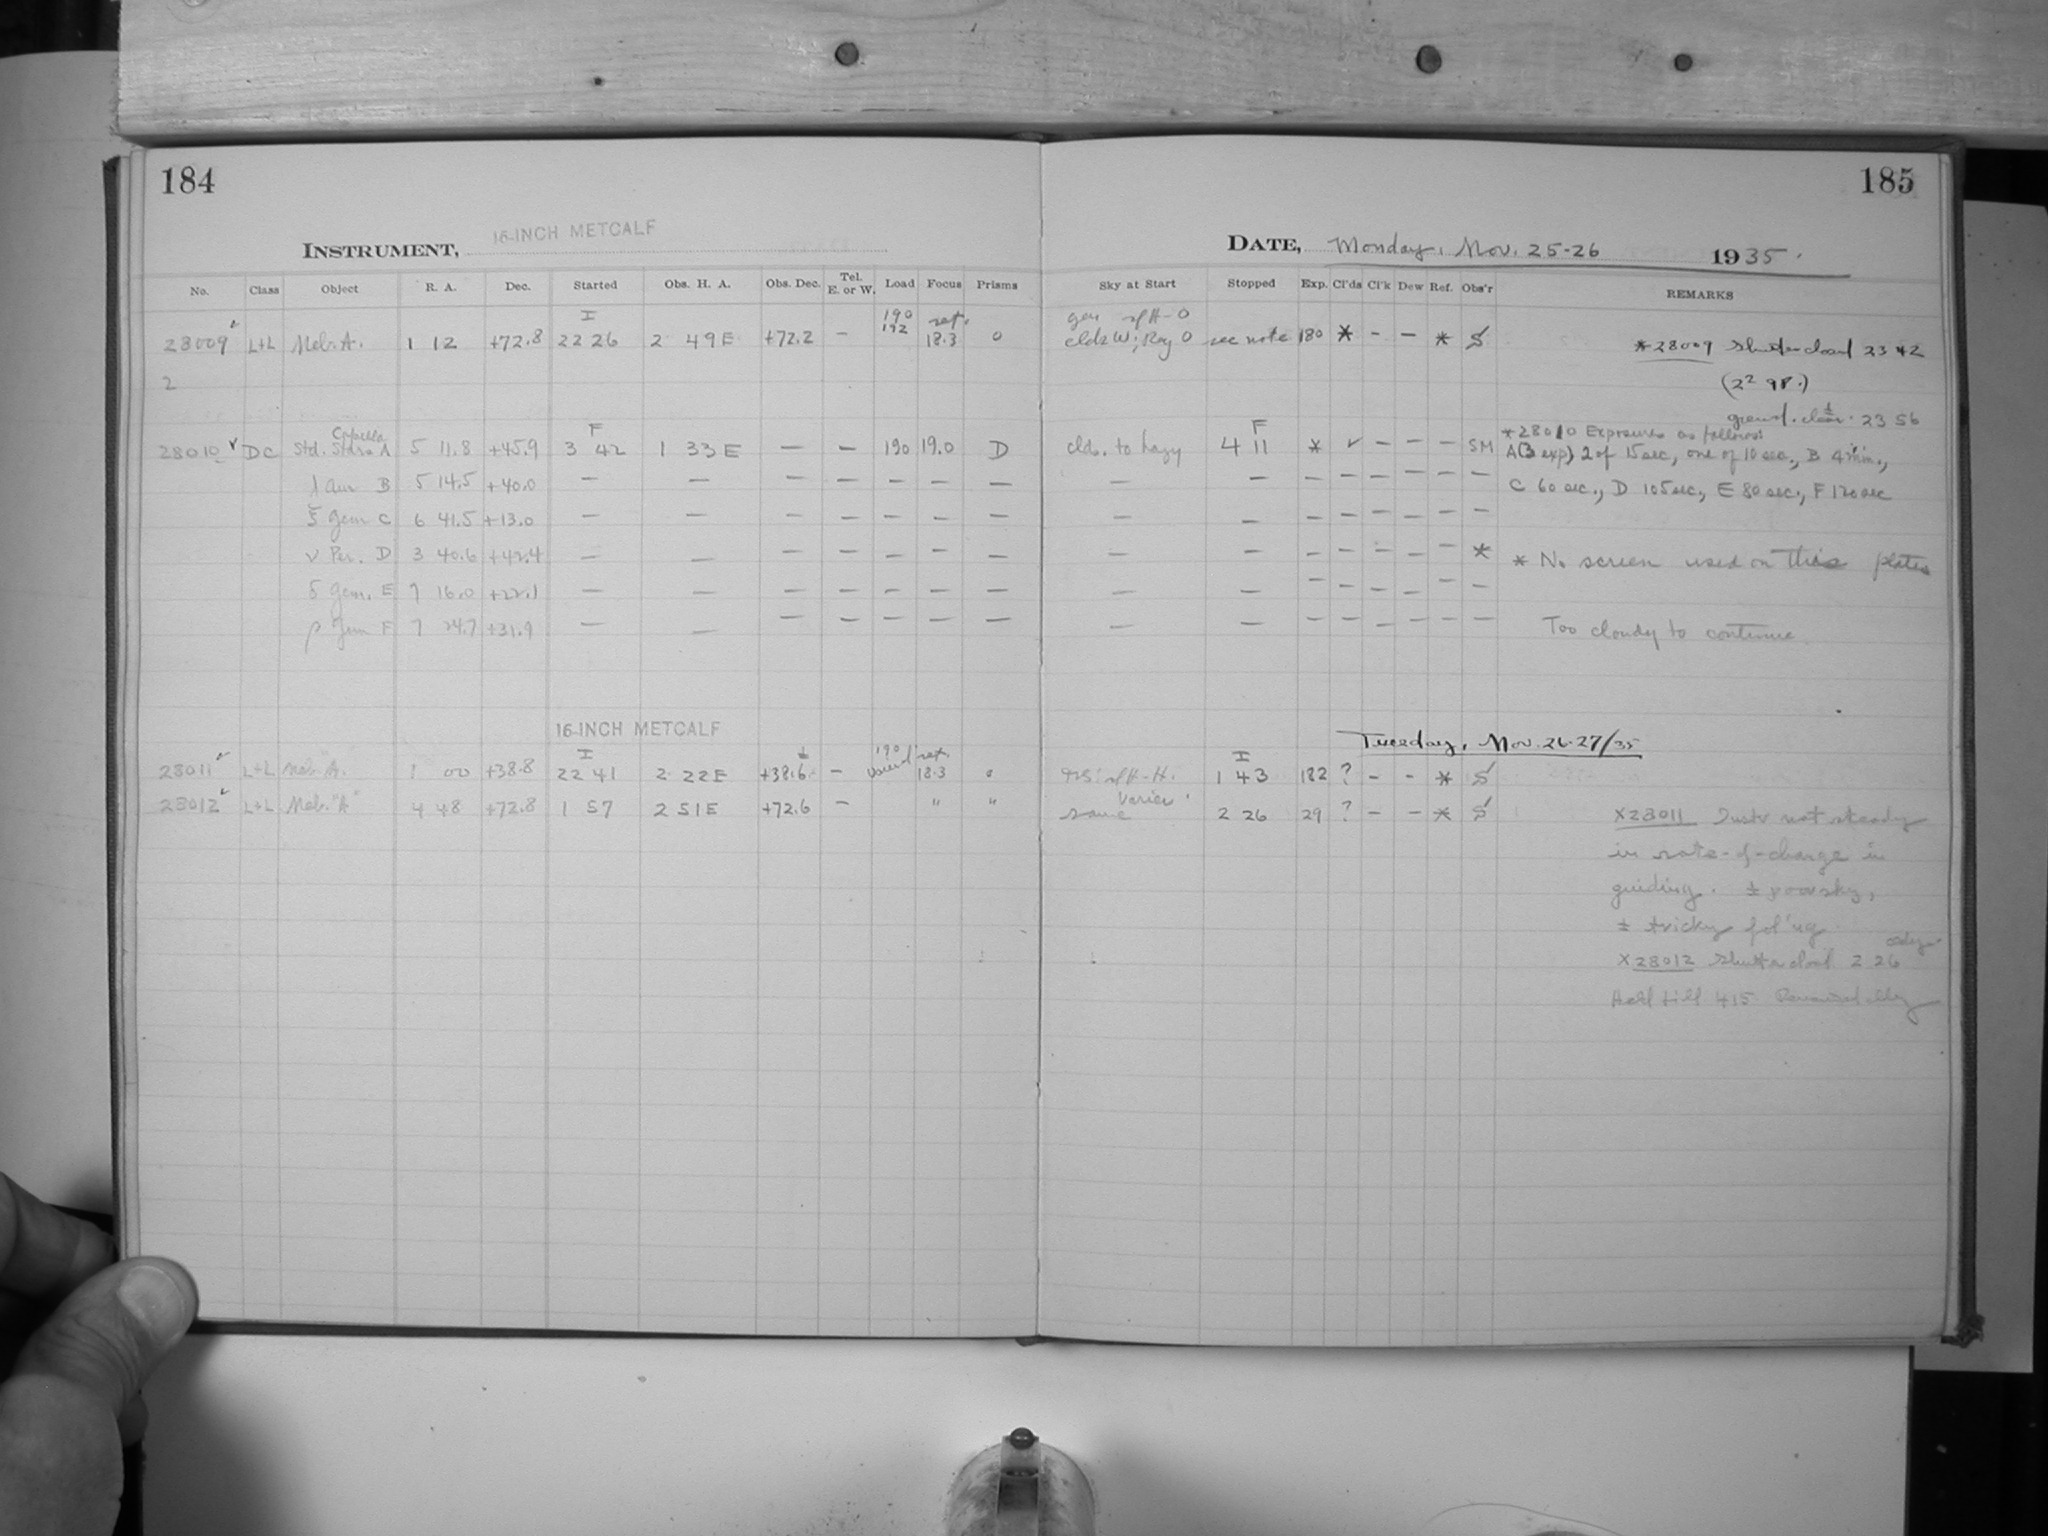 184
INSTRUMENT, 16-INCH METCALF
No. Class Object R. A. Dec. Started Obs. H. A. Obs. Dec. Tel. E. or W. Load Focus Prisms
I 190 ref.
28009 L+L Neb. A. 1 12 +72.8 22 26 2 49 E +72.2 - 192 18.3 0
2
Capella F
28010 DC Std. Stdrs A 5 11.8 +45.9 3 42 1 33 E — — 190 19.0 D
λ Aur B 5 14.5 +40.0 — — — — — — —
ξ Gem C 6 41.5 +13.0 — — — — — — —
ν Per. D 3 40.6 +42.4 — — — — — — —
δ Gem. E 7 16.0 +22.1 — — — — — — —
ρ Gem F 7 24.7 +31.9 — — — — — — —
16-INCH METCALF
I ± 190 ref.
28011 L+L Neb. A. 1 00 +38.8 22 41 2 22 E +38.6 - 18.3
28012 L+L Neb. "A" 4 48 +72.8 1 57 2 51 E +72.6 - " "
185
DATE, Monday, Nov. 25-26 1935.
Sky at Start Stopped Exp. Cl'ds Cl'k Dew Ref. Obs'r REMARKS
clds W; Rog 0 see note 180 * - - * S
*28009 Shutter closed 23 42
23 56
F
clds. to hazy 4 11 * ✓ — — — SM
*28010 Exposures as follows:
A (3 exp) 2 of 15 sec, one of 10 sec., B 4 min.,
C 60 sec., D 105 sec., E 80 sec., F 120 sec
* No screen used on this plates
Too cloudy to continue.
Tuesday, Nov. 26-27/35
I
1 43 182 ? - - * S
Varies
same 2 26 29 ? - - * S
X28011 Instr not steady
in rate-of-change in
guiding. ± poor sky,
± tricky fol'ng.
X28012 Shutter closed 2 26
Held till 4 15